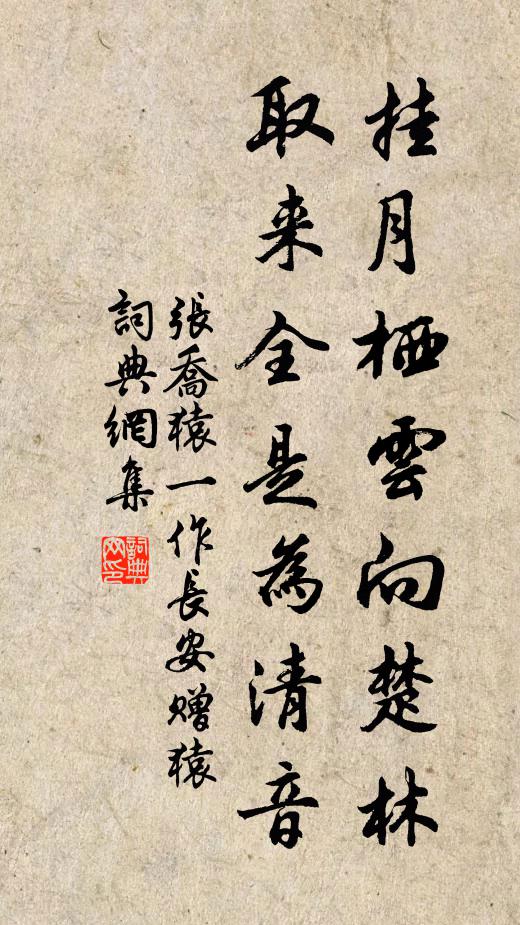 挂月栖雲向楚林
取来全是為清音
張喬猿一作長安赠猿
詞典網集
詞典网印